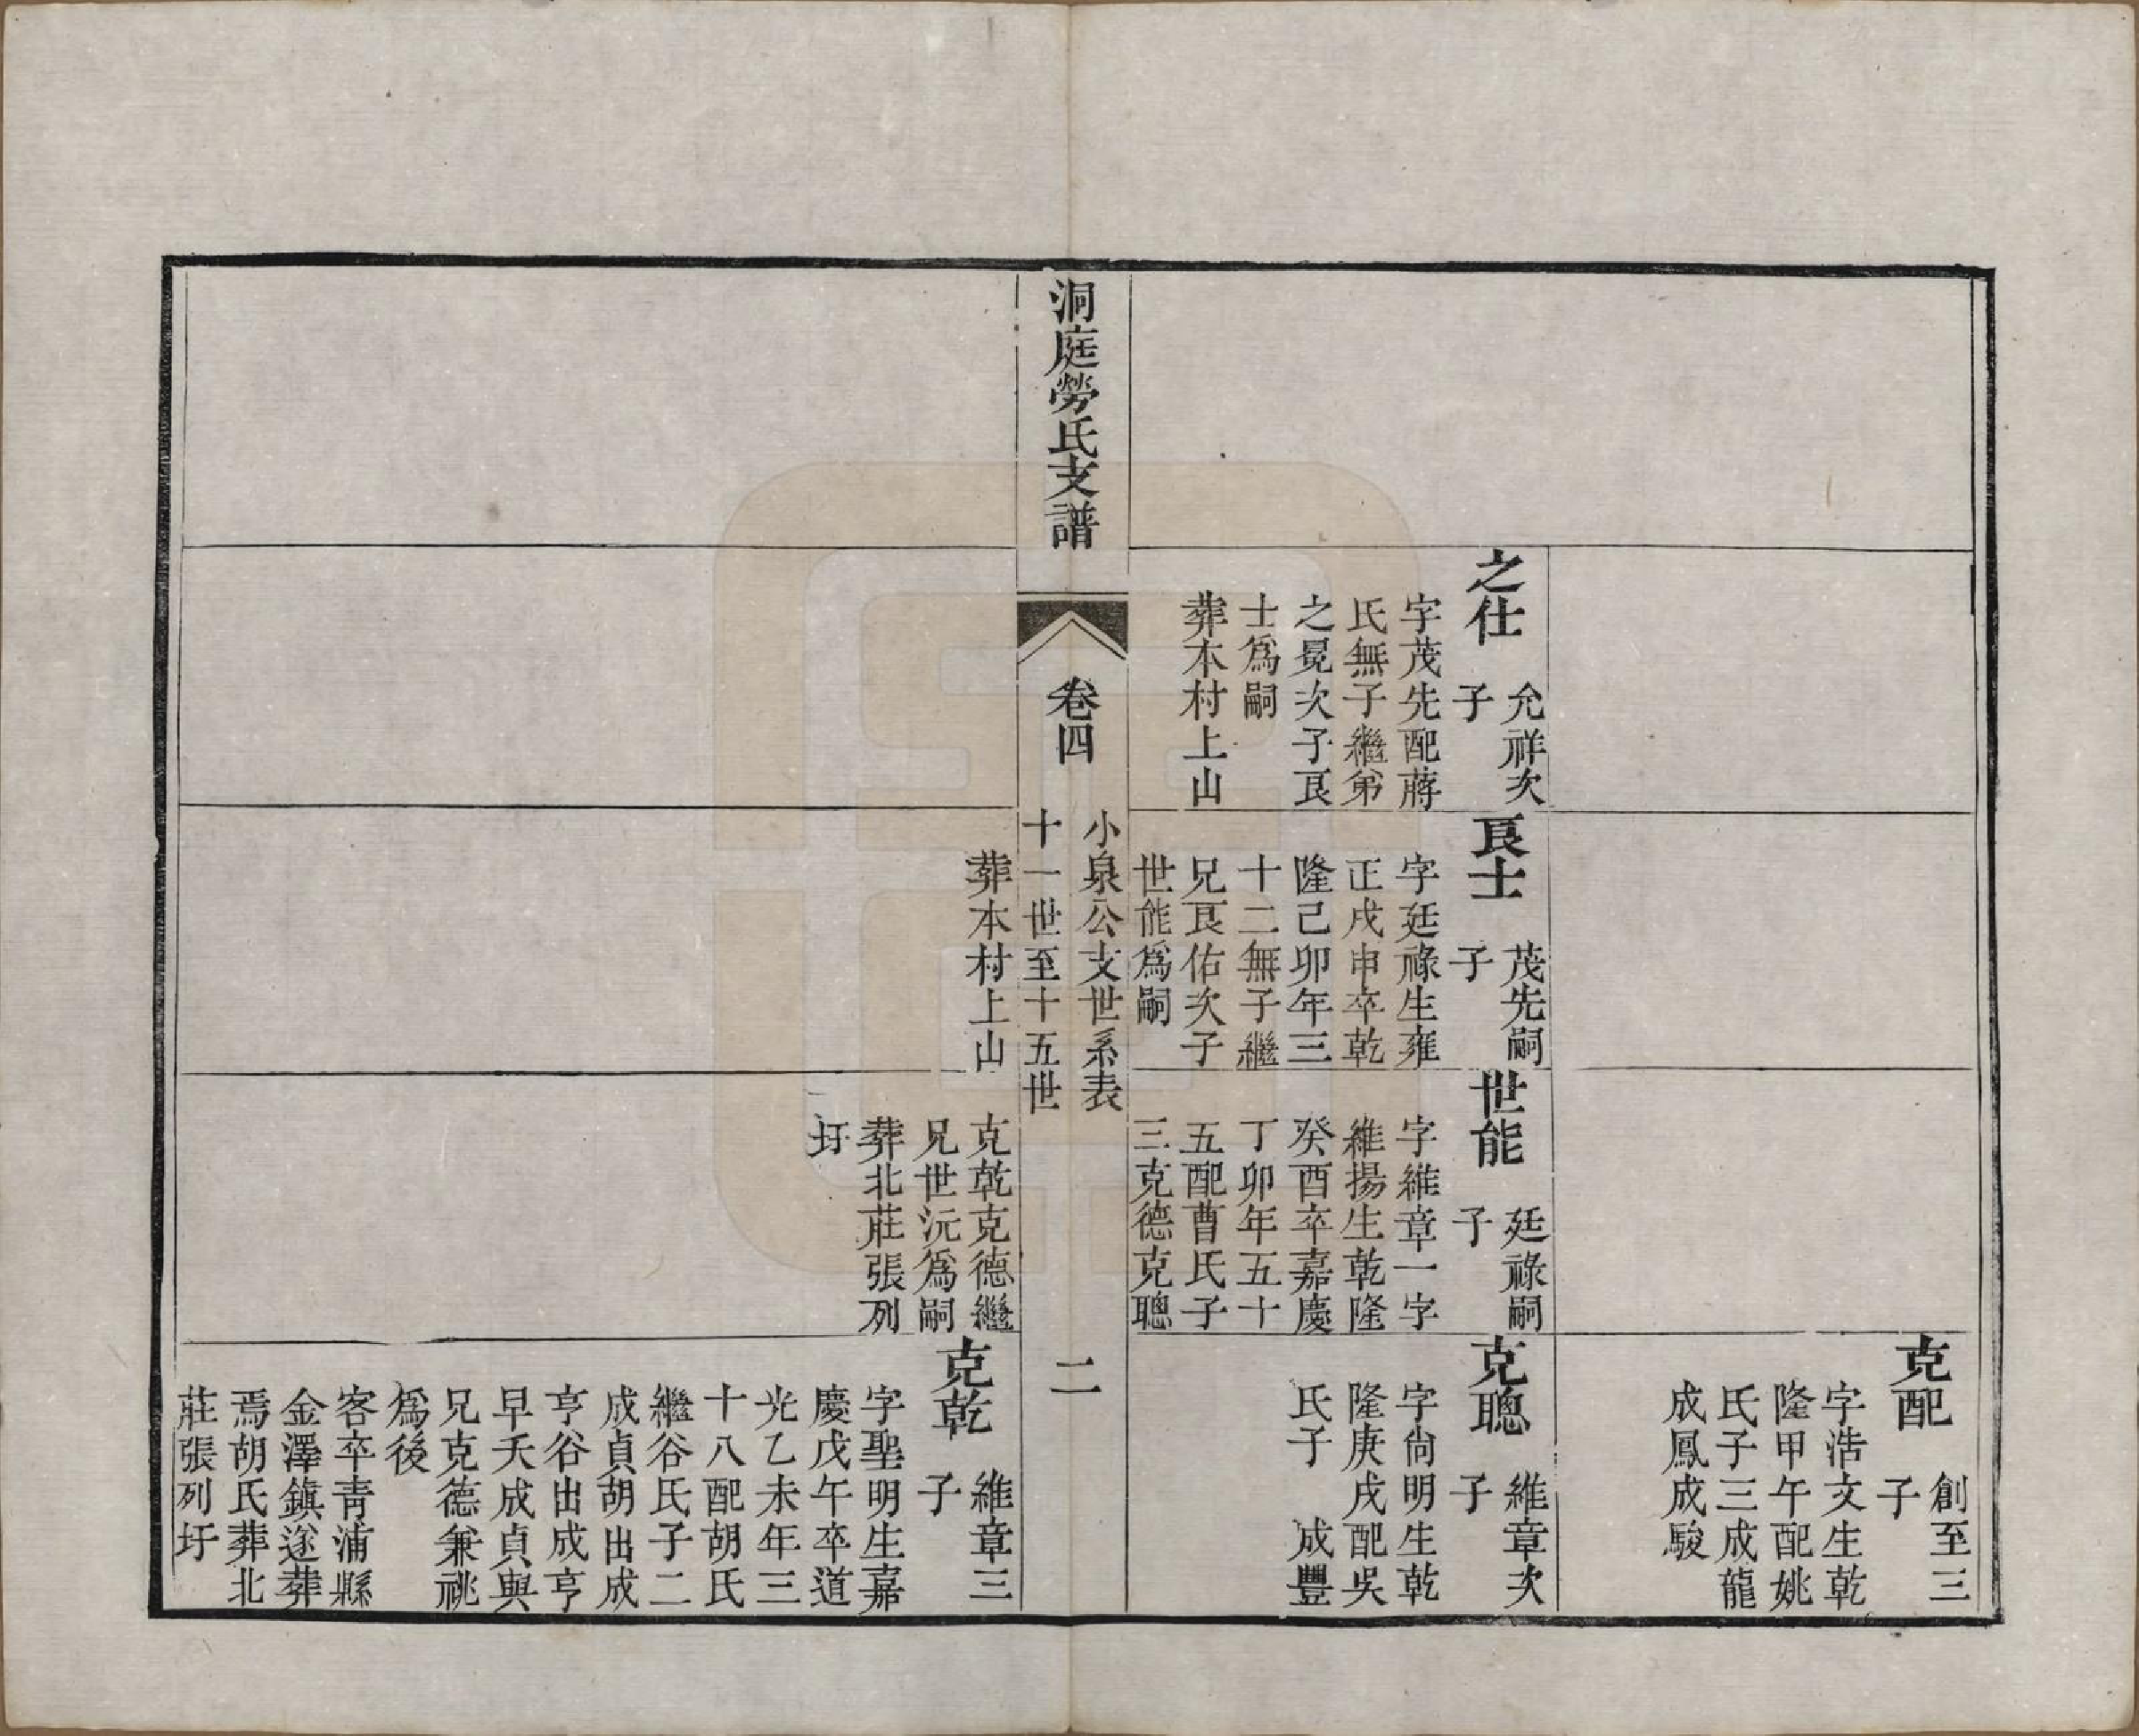 克配
創至三
子
字浩文生乾
隆甲午配姚
氏子三成龍
成鳳成駿
之仕
允祥次
子
字茂先配蔣
氏無子繼弟
之冕次子良
士爲嗣
葬本村上山
良士
茂先嗣
子
字廷祿生雍
正戌申卒乾
隆己卯年三
十二無子繼
兄良佑次子
世能爲嗣
葬本村上山
世能
廷祿嗣
子
字維章一字
維揚生乾隆
癸酉卒嘉慶
丁卯年五十
五配曹氏子
三克德克聰
克乾克德繼
兄世沅爲嗣
葬北莊張列
圩
克聰
維章次
子
字尙明生乾
隆庚戌配吳
氏子 成豐
洞庭勞氏支譜
卷四
小泉公支世系表
十一世至十五世
二
克乾
維章三
子
字聖明生嘉
慶戊午卒道
光乙未年三
十八配胡氏
繼谷氏子二
成貞胡出成
亨谷出成亨
早夭成貞與
兄克德兼祧
爲後
客卒靑浦縣
金澤鎭遂葬
焉胡氏葬北
莊張列圩